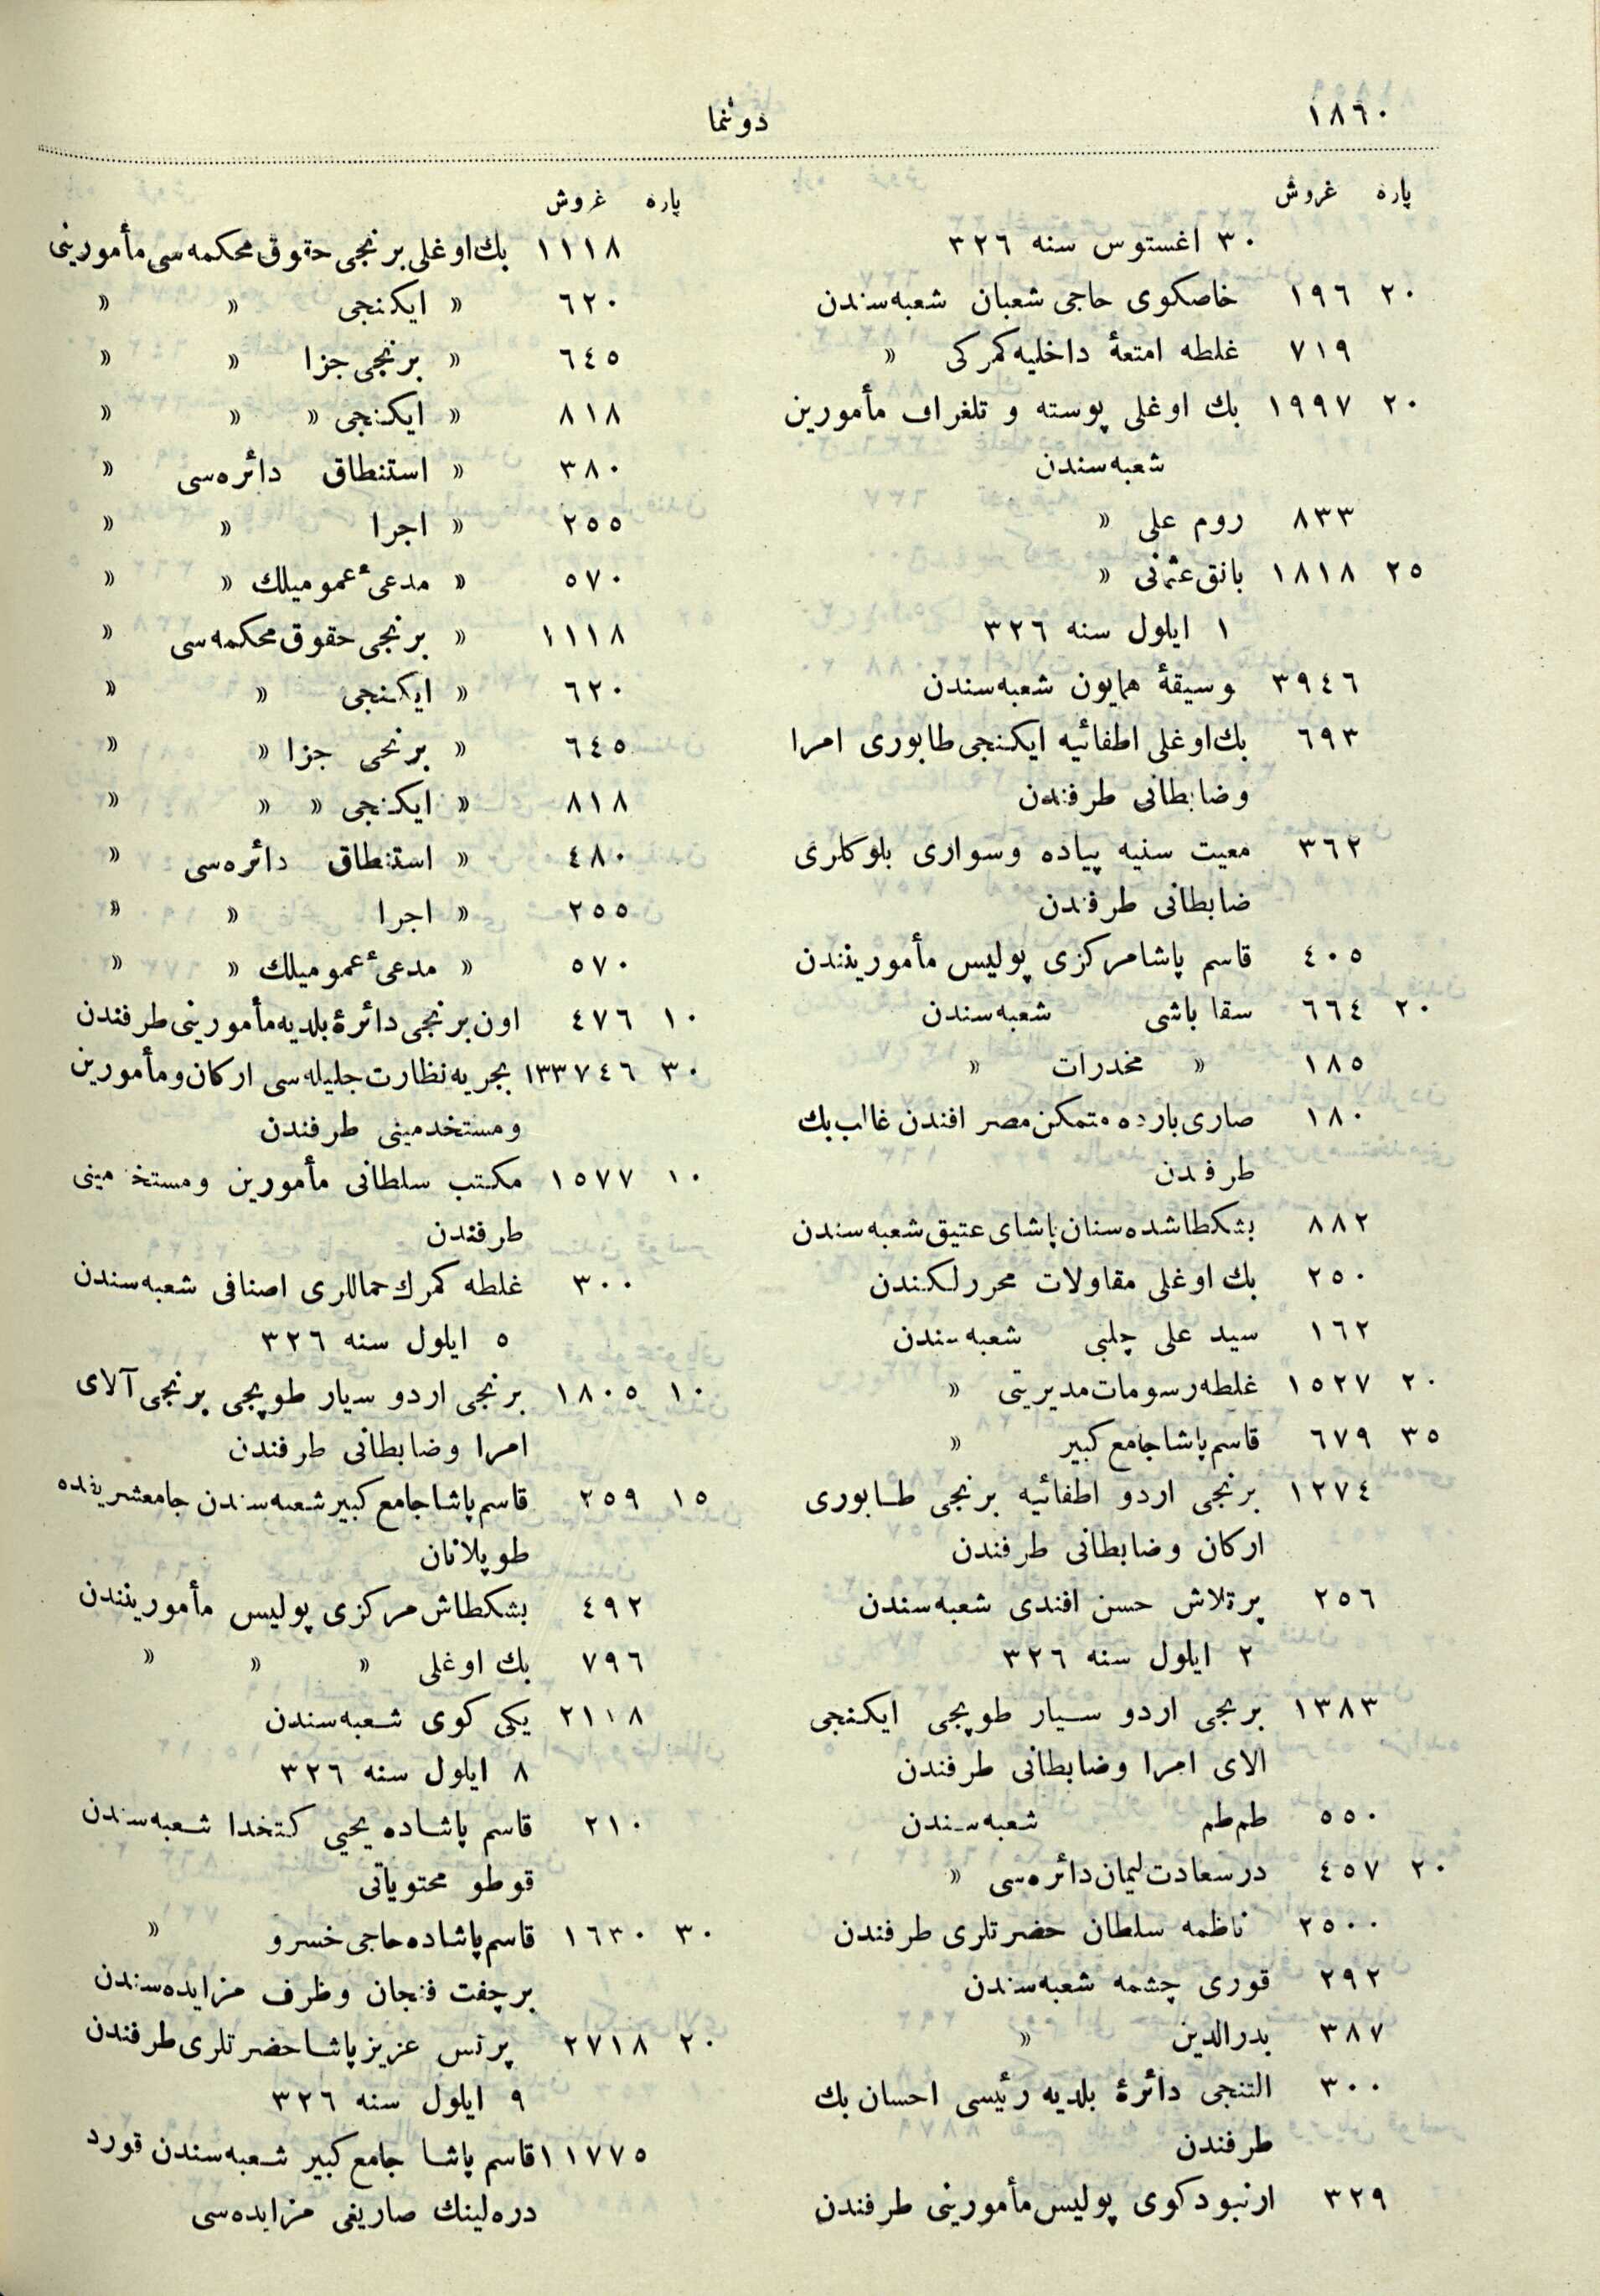 ١٨٦٠
دوننما
پاره غروش
٣٠ اغستوس سنه ٣٢٦
٢٠ ١٩٦ خاصكوى حاجى شعبان شعبه‌سندن
٧١٩ غلطه امتعۀ داخليه كمركى »
٢٠ ١٩٩٧ بك اوغلى پوسته و تلغراف مأمورين
شعبه‌سندن
٨٣٣ روم على »
٢٥ ١٨١٨ بانق عثمانى »
١ ايلول سنه ٣٢٦
٣٩٤٦ وسيقۀ همايون شعبه‌سندن
٦٩٣ بك‌اوغلى اطفائيه ايكنجى طابورى امرا
وضابطانى طرفندن
٣٦٢ معيت سنيه پياده وسوارى بلوكلرى
ضابطانى طرفندن
٤٠٥ قاسم پاشا مركزى پوليس مأمورينندن
٢٠ ٦٦٤ سقا باشى شعبه‌سندن
١٨٥ » مخدرات »
١٨٠ صارى‌يارده متمكن مصر افندن غالب بك
طرفدن
٨٨٢ بشكطاشده سنان پاشاى عتيق شعبه‌سندن
٢٥٠ بك اوغلى مقاولات محررلكندن
١٦٢ سيد على چلبى شعبه‌سندن
٢٠ ١٥٢٧ غلطه رسومات مديريتى »
٣٥ ٦٧٩ قاسم پاشا جامع كبير »
١٢٧٤ برنجى اردو اطفائيه برنجى طابورى
اركان وضابطانى طرفندن
٢٥٦ پرتلاش حسن افندى شعبه‌سندن
٢ ايلول سنه ٣٢٦
١٣٨٣ برنجى اردو سيار طوپجى ايكنجى
الاى امرا وضابطانى طرفندن
٥٥٠ طم‌طم شعبه‌سندن
٢٠ ٤٥٧ درسعادت ليمان دائره‌سى »
٢٥٠٠ ناظمه سلطان حضرتلرى طرفندن
٢٩٢ قورى چشمه شعبه‌سندن
٣٨٧ بدرالدين »
٣٠٠ التنجى دائرۀ بلديه رئيسى احسان بك
طرفندن
٣٢٩ ارنبودكوى پوليس مأمورينى طرفندن
پاره غروش
١١١٨ بك‌اوغلى برنجى حقوق محكمه‌سى مأمورينى
٦٢٠ » ايكنجى » »
٦٤٥ » برنجى جزا » »
٨١٨ » ايكنجى » » »
٣٨٠ » استنطاق دائره‌سى »
٢٥٥ » اجرا » »
٥٧٠ » مدعىء عموميلك » »
١١١٨ » برنجى حقوق محكمه‌سى »
٦٢٠ » ايكنجى » »
٦٤٥ » برنجى جزا » »
٨١٨ » ايكنجى » » »
٤٨٠ » استنطاق دائره‌سى »
٢٥٥ » اجرا » »
٥٧٠ » مدعىء عموميلك » »
١٠ ٤٧٦ اون برنجى دائرۀ بلديه مأمورينى طرفندن
٣٠ ١٣٣٧٤٦ بحريه نظارت جليله‌سى اركان ومأمورين
ومستخدمينى طرفندن
١٠ ١٥٧٧ مكتب سلطانى مأمورين ومستخدمينى
طرفندن
٣٠٠ غلطه كمرك حماللرى اصنافى شعبه‌سندن
٥ ايلول سنه ٣٢٦
١٠ ١٨٠٥ برنجى اردو سيار طوپجى برنجى آلاى
امرا وضابطانى طرفندن
١٥ ٢٥٩ قاسم پاشا جامع كبير شعبه‌سندن جامعشريفده
طوپلانان
٤٩٢ بشكطاش مركزى پوليس مأمورينندن
٧٩٦ بك اوغلى » » »
٢١١٨ يكى كوى شعبه‌سندن
٨ ايلول سنه ٣٢٦
٢١٠ قاسم پاشاده يحيى كتخدا شعبه‌سندن
قوطو محتوياتى
٣٠ ١٦٣٠ قاسم پاشاده حاجى خسرو »
برچفت فنجان وظرف مزايده‌سندن
٢٠ ٢٧١٨ پرنس عزيز پاشا حضرتلرى طرفندن
٩ ايلول سنه ٣٢٦
١١٧٧٥ قاسم پاشا جامع كبير شعبه‌سندن قورد
دره‌لينك صاريغى مزايده‌سى